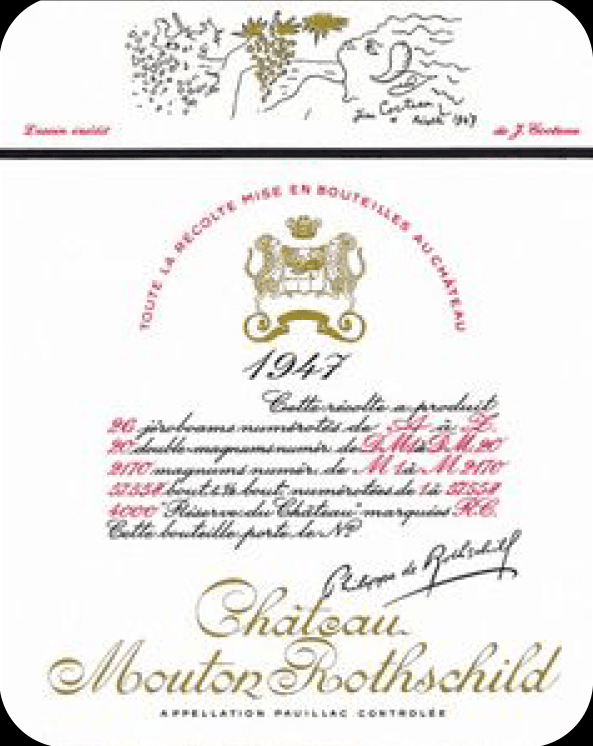 Jean Cocteau
* 1947
Dessin inédit
de J. Cocteau
TOUTE LA RÉCOLTE MISE EN BOUTEILLES AU CHÂTEAU
1947
Cette récolte a produit
26 jéroboams numérotés de A à Z.
20 double-magnums numér. de D.M.1 à D.M.20
2170 magnums numér. de M 1 à M 2170
57558 bout. & ½ bout. numérotées de 1 à 57558
4000 "Réserve du Château" marquées R.C.
Cette bouteille porte le Nº
Philippe de Rothschild
Château
Mouton Rothschild
APPELLATION PAUILLAC CONTROLÉE